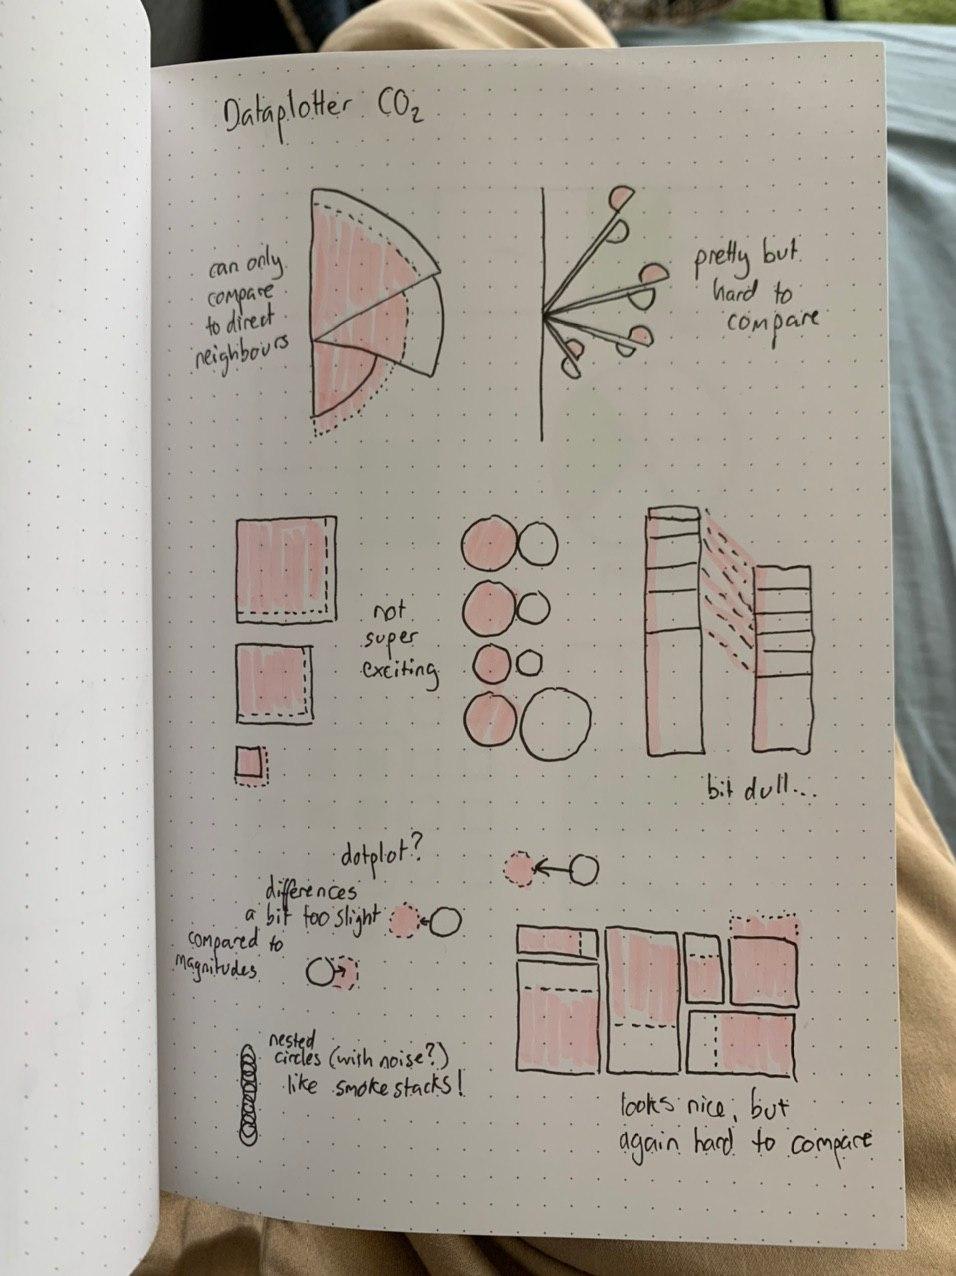 Dataplotter CO₂
can only
compare
to direct
neighbours
pretty but
hard to
compare
not
super
exciting
bit dull...
dotplot?
differences
a bit too slight
compared to
magnitudes
nested
circles (with noise?)
like smoke stacks!
looks nice, but
again hard to compare